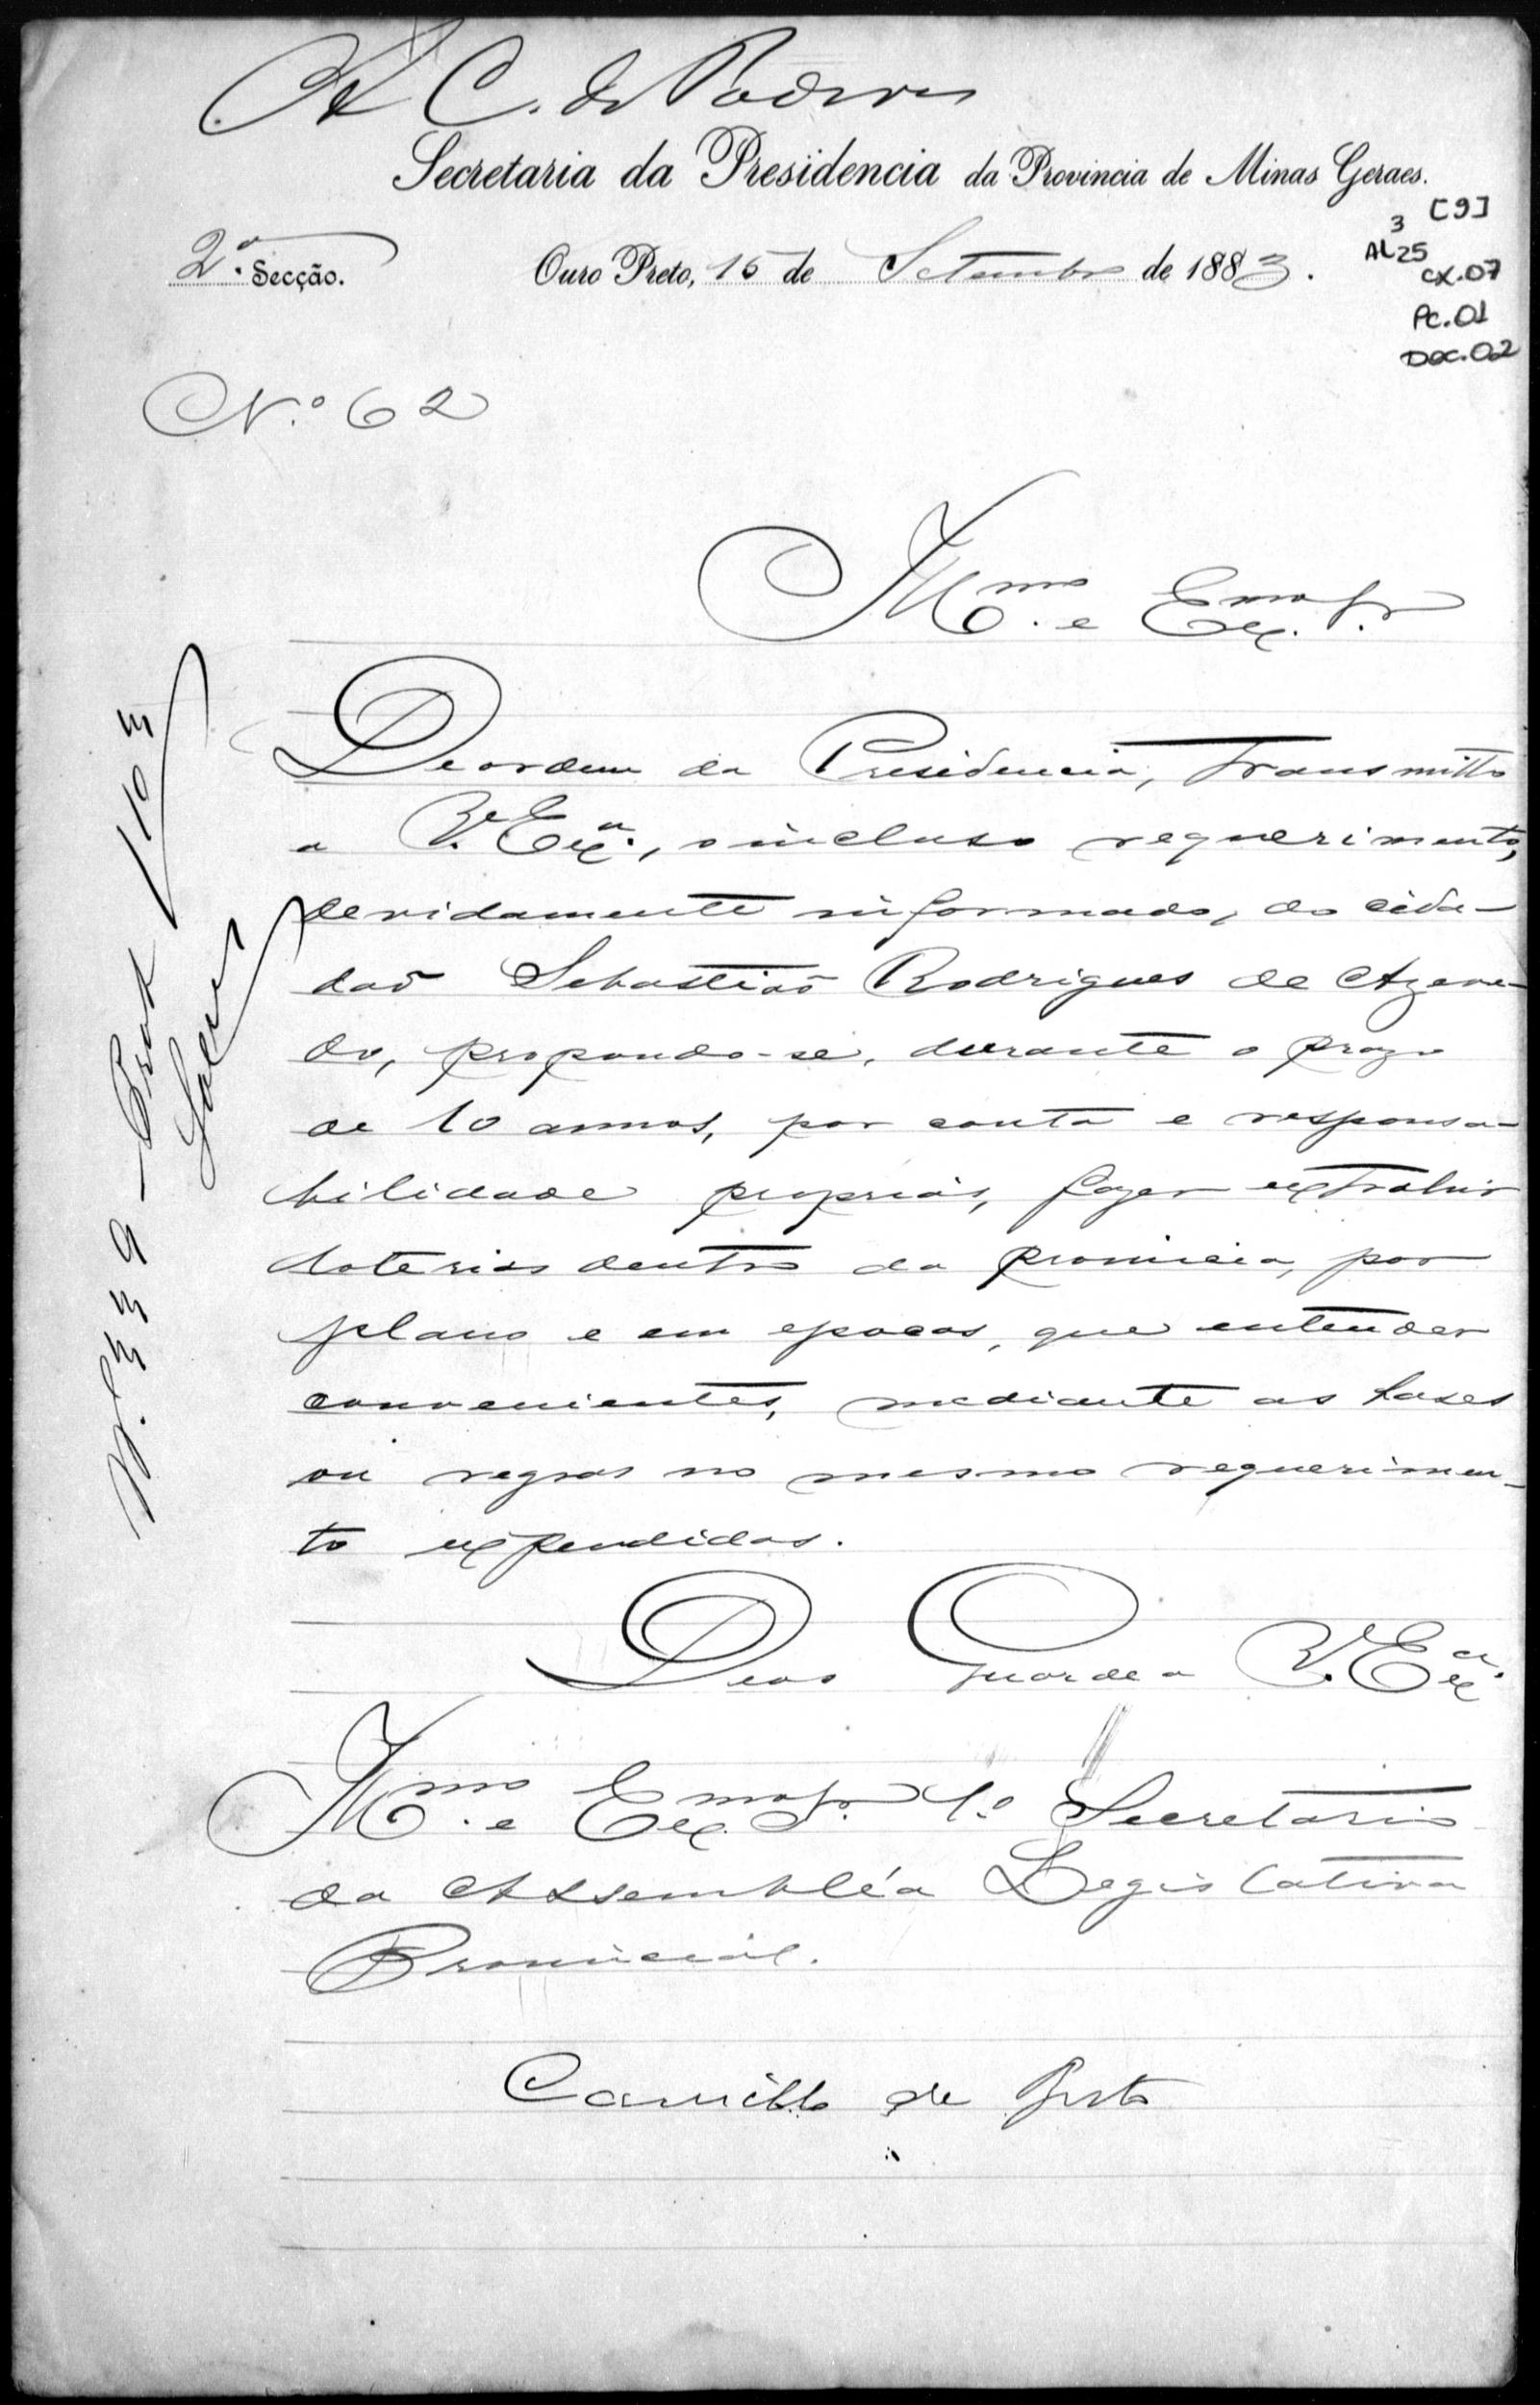 Á C. de Poderes
Secretaria da Presidencia da Provincia de Minas Geraes.
[9]
3
AL25
cx.07
Pc.01
Doc.02
2ª Secção.
Ouro Preto, 15 de Setembro de 1883.
N.º 62
Illmo. e Exmo. Sr.
De ordem da Presidencia, transmitto
a V. Exª., o incluso requerimento,
devidamente informado, do cida-
daõ Sebastiaõ Rodrigues de Azeve-
do, propondo-se, durante o prazo
de 10 annos, por conta e responsa-
bilidade proprias, fazer extrahir
loterias dentro da provincia, por
plano e em epocas, que entender
convenientes, mediante as bases
ou regras no mesmo requerimen-
to expendidas.
Deus Guarde a V. Exª.
Illmo. e Exmo. Sr. 1.º Secretario
da Assembléa Legislativa
Provincial.
Camillo de Brito
N.º 339 - Prot 110
Salles